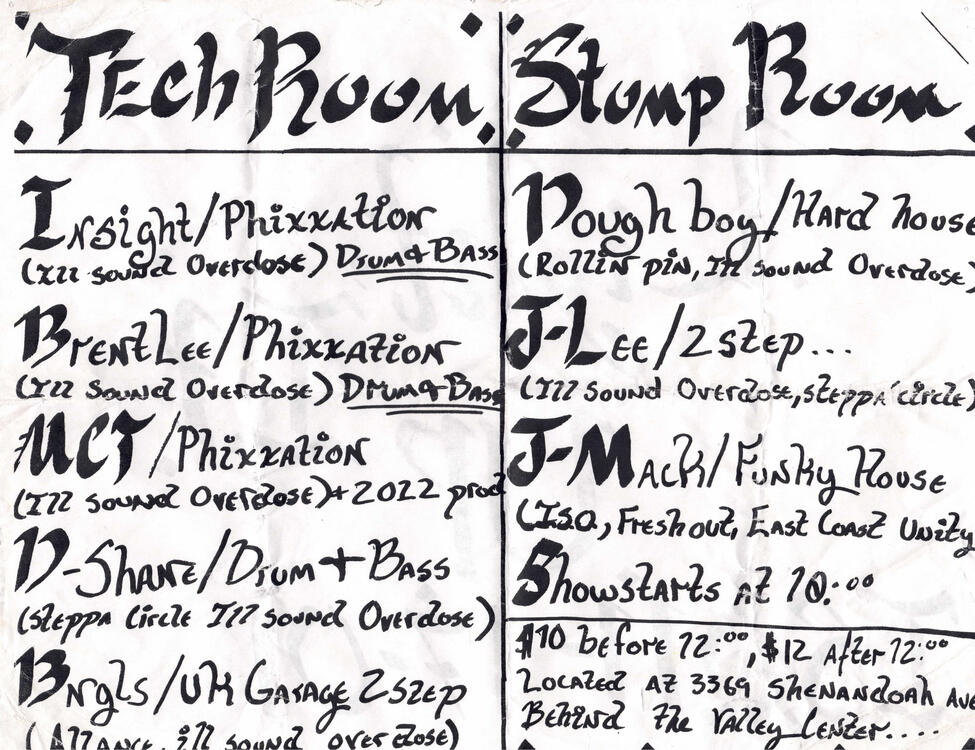 Tech Room
Insight/Phixxation
(Ill sound Overdose) Drum & Bass
BrentLee/Phixxation
(Ill Sound Overdose) Drum & Bass
MCT/Phixxation
(Ill sound Overdose) + 2022 prod
D-Shane/Drum + Bass
(steppa Circle Ill sound Overdose)
Bngls/UK Garage 2 step
(Alliance, ill sound overdose)
Stomp Room
Dough boy/Hard house
(Rollin pin, Ill sound Overdose)
J-Lee/2 step...
(Ill sound Overdose, steppa circle)
J-Mack/Funky House
(I.S.O., Fresh out, East Coast Unity
Show starts at 10:00
$10 before 12:00, $12 After 12:00
Located at 3369 Shenandoah Ave
Behind the Valley Center....